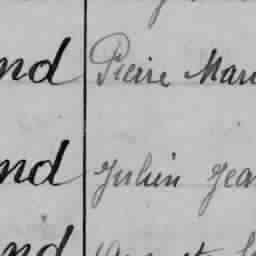 nd Pierre Mari
nd Julien Jean
nd